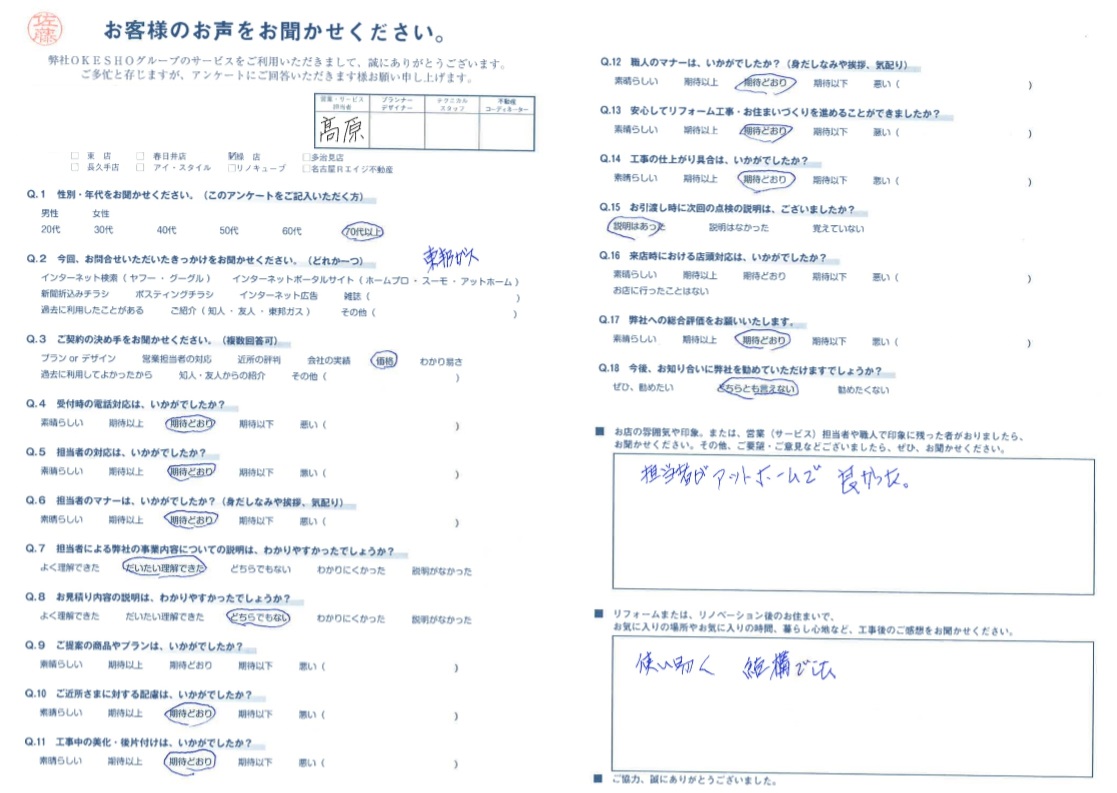 佐藤
お客様のお声をお聞かせください。
弊社OKESHOグループのサービスをご利用いただきまして、誠にありがとうございます。
ご多忙と存じますが、アンケートにご回答いただきます様お願い申し上げます。
営業・サービス担当者 プランナーデザイナー テクニカルスタッフ 不動産コーディネーター
高原
□ 東 店 □ 春日井店 ☑緑 店 □多治見店
□ 長久手店 □ アイ・スタイル □リノキューブ □名古屋Rエイジ不動産
Q.1 性別・年代をお聞かせください。(このアンケートをご記入いただく方)
男性 女性
20代 30代 40代 50代 60代 70代以上
Q.2 今回、お問合せいただいたきっかけをお聞かせください。(どれか一つ) 東邦ガス
インターネット検索(ヤフー・グーグル) インターネットポータルサイト(ホームプロ・スーモ・アットホーム)
新聞折込みチラシ ポスティングチラシ インターネット広告 雑誌( )
過去に利用したことがある ご紹介(知人・友人・東邦ガス) その他( )
Q.3 ご契約の決め手をお聞かせください。(複数回答可)
プラン or デザイン 営業担当者の対応 近所の評判 会社の実績 価格 わかり易さ
過去に利用してよかったから 知人・友人からの紹介 その他( )
Q.4 受付時の電話対応は、いかがでしたか?
素晴らしい 期待以上 期待どおり 期待以下 悪い( )
Q.5 担当者の対応は、いかがでしたか?
素晴らしい 期待以上 期待どおり 期待以下 悪い( )
Q.6 担当者のマナーは、いかがでしたか?(身だしなみや挨拶、気配り)
素晴らしい 期待以上 期待どおり 期待以下 悪い( )
Q.7 担当者による弊社の事業内容についての説明は、わかりやすかったでしょうか?
よく理解できた だいたい理解できた どちらでもない わかりにくかった 説明がなかった
Q.8 お見積り内容の説明は、わかりやすかったでしょうか?
よく理解できた だいたい理解できた どちらでもない わかりにくかった 説明がなかった
Q.9 ご提案の商品やプランは、いかがでしたか?
素晴らしい 期待以上 期待どおり 期待以下 悪い( )
Q.10 ご近所さまに対する配慮は、いかがでしたか?
素晴らしい 期待以上 期待どおり 期待以下 悪い( )
Q.11 工事中の美化・後片付けは、いかがでしたか?
素晴らしい 期待以上 期待どおり 期待以下 悪い( )
Q.12 職人のマナーは、いかがでしたか?(身だしなみや挨拶、気配り)
素晴らしい 期待以上 期待どおり 期待以下 悪い( )
Q.13 安心してリフォーム工事・お住まいづくりを進めることができましたか?
素晴らしい 期待以上 期待どおり 期待以下 悪い( )
Q.14 工事の仕上がり具合は、いかがでしたか?
素晴らしい 期待以上 期待どおり 期待以下 悪い( )
Q.15 お引渡し時に次回の点検の説明は、ございましたか?
説明はあった 説明はなかった 覚えていない
Q.16 来店時における店頭対応は、いかがでしたか?
素晴らしい 期待以上 期待どおり 期待以下 悪い( )
お店に行ったことはない
Q.17 弊社への総合評価をお願いいたします。
素晴らしい 期待以上 期待どおり 期待以下 悪い( )
Q.18 今後、お知り合いに弊社を勧めていただけますでしょうか?
ぜひ、勧めたい どちらとも言えない 勧めたくない
■ お店の雰囲気や印象、または、営業(サービス)担当者や職人で印象に残った者がおりましたら、
お聞かせください。その他、ご要望・ご意見などございましたら、ぜひ、お聞かせください。
担当者がアットホームで 良かった。
■ リフォームまたは、リノベーション後のお住まいで、
お気に入りの場所やお気に入りの時間、暮らし心地など、工事後のご感想をお聞かせください。
使い易く 結構でした
■ ご協力、誠にありがとうございました。